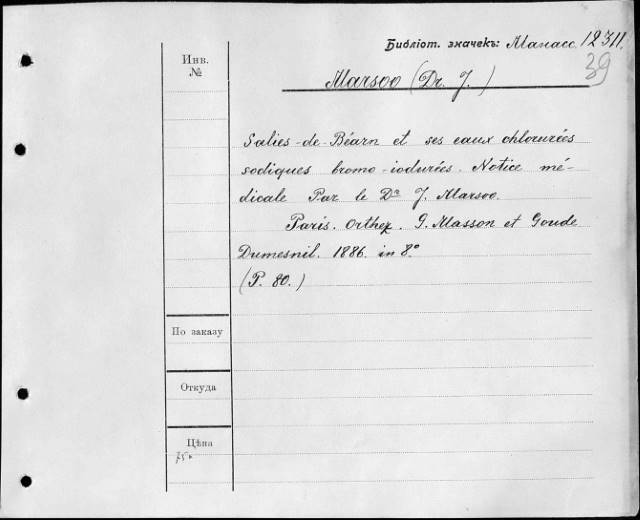 Библіот. значекъ: Манасс. 12311.
39
Инв.
№
Marsoo (Dr. J.)
Salies-de-Béarn et ses eaux chlorurées
sodiques bromo-iodurées. Notice mé-
dicale Par le Dr J. Marsoo.
Paris. Orthez. G. Masson et Goude
Dumesnil. 1886. in 8°
(P. 80.)
По заказу
Откуда
Цѣна
75к